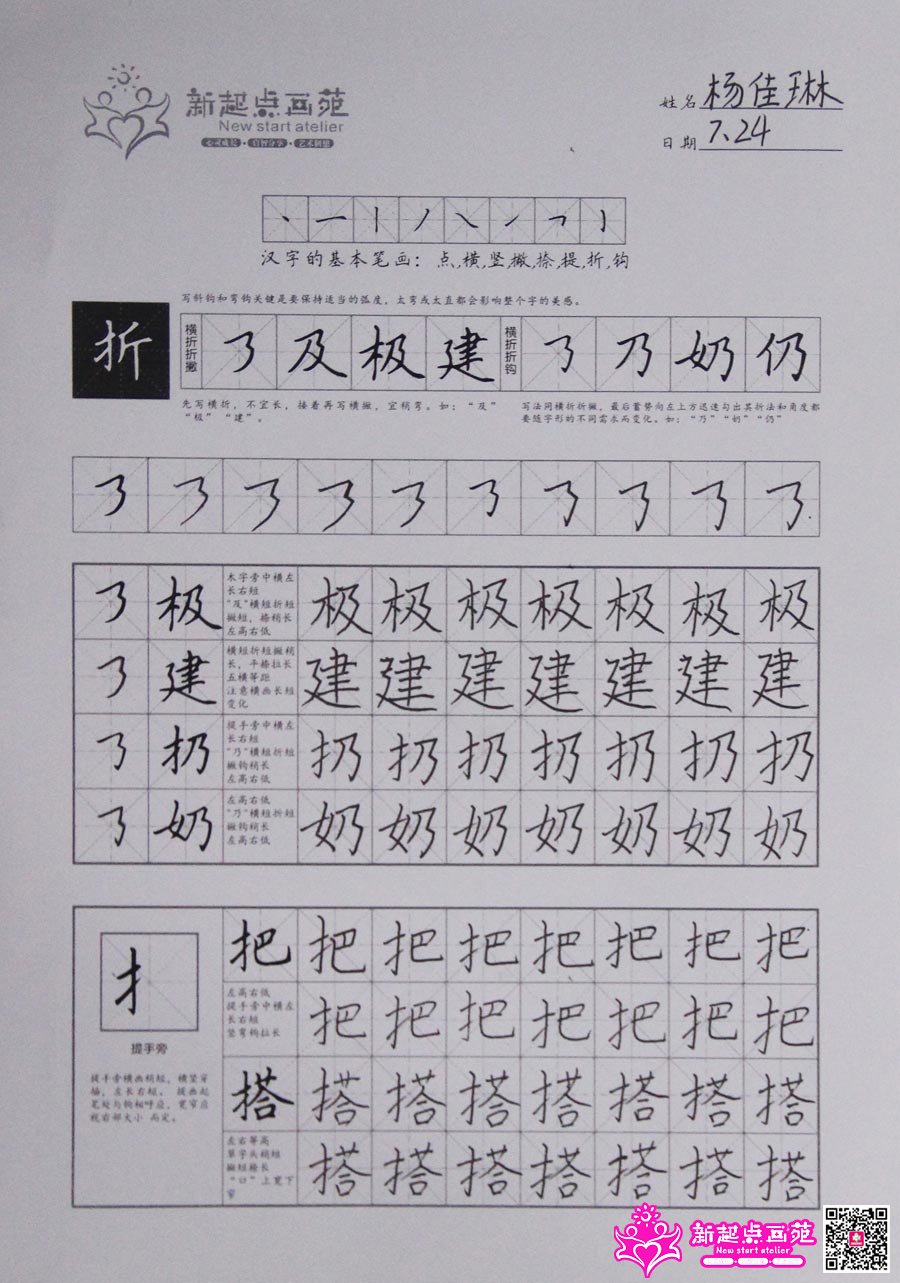 新起点画苑
New start atelier
姓名 杨佳琳
日期 7.24
汉字的基本笔画：点,横,竖,撇,捺,提,折,钩
写斜钩和弯钩关键是要保持适当的弧度，太弯或太直都会影响整个字的美感。
折 横折折撇 及 极 建 横折折钩 乃 奶 仍
先写横折，不宜长，接着再写横撇，宜稍弯。如：“及”
“极”“建”。
写法同横折折撇，最后蓄势向左上方迅速勾出其折法和角度都
要随字形的不同需求而变化。如：“乃”“奶”“仍”
极
木字旁中横左
长右短
“及”横短折短
撇短，捺稍长
左高右低
极 极 极 极 极 极 极
建
横短折短撇稍
长，平捺拉长
五横等距
注意横画长短
变化
建 建 建 建 建 建 建
扔
提手旁中横左
长右短
“乃”横短折短
撇钩稍长
左高右低
扔 扔 扔 扔 扔 扔 扔
奶
左高右低
“乃”横短折短
撇钩稍长
左高右低
奶 奶 奶 奶 奶 奶 奶
扌
提手旁
提手旁横画稍短，横竖穿
插，左长右短。提画起
笔处与钩相呼应，宽窄应
视右部大小 而定。
把 把 把 把 把 把 把 把
左高右低
提手旁中横左
长右短
竖弯钩拉长
把 把 把 把 把 把 把
搭 搭 搭 搭 搭 搭 搭 搭
左右等高
草字头稍短
撇短捺长
“口”上宽下
窄
搭 搭 搭 搭 搭 搭 搭
新起点画苑
New start atelier